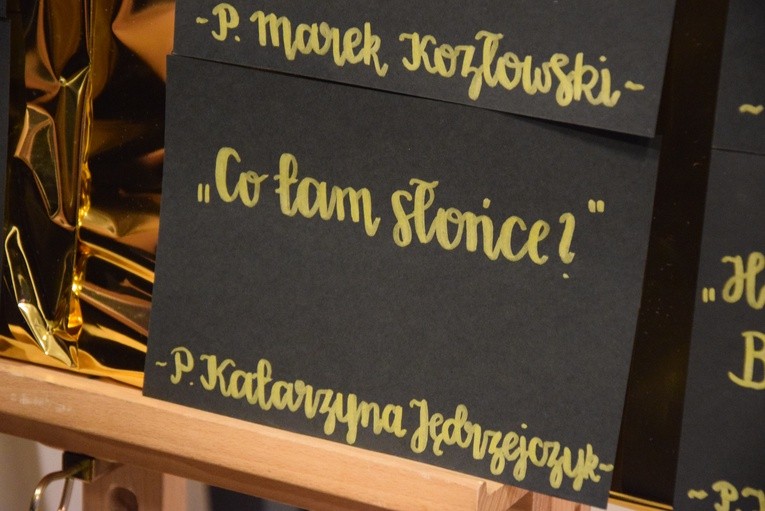 ~P. Marek Kozłowski~
„Co tam słońce?"
~P. Katarzyna Jędrzejczyk~
„H
B
~P.
~